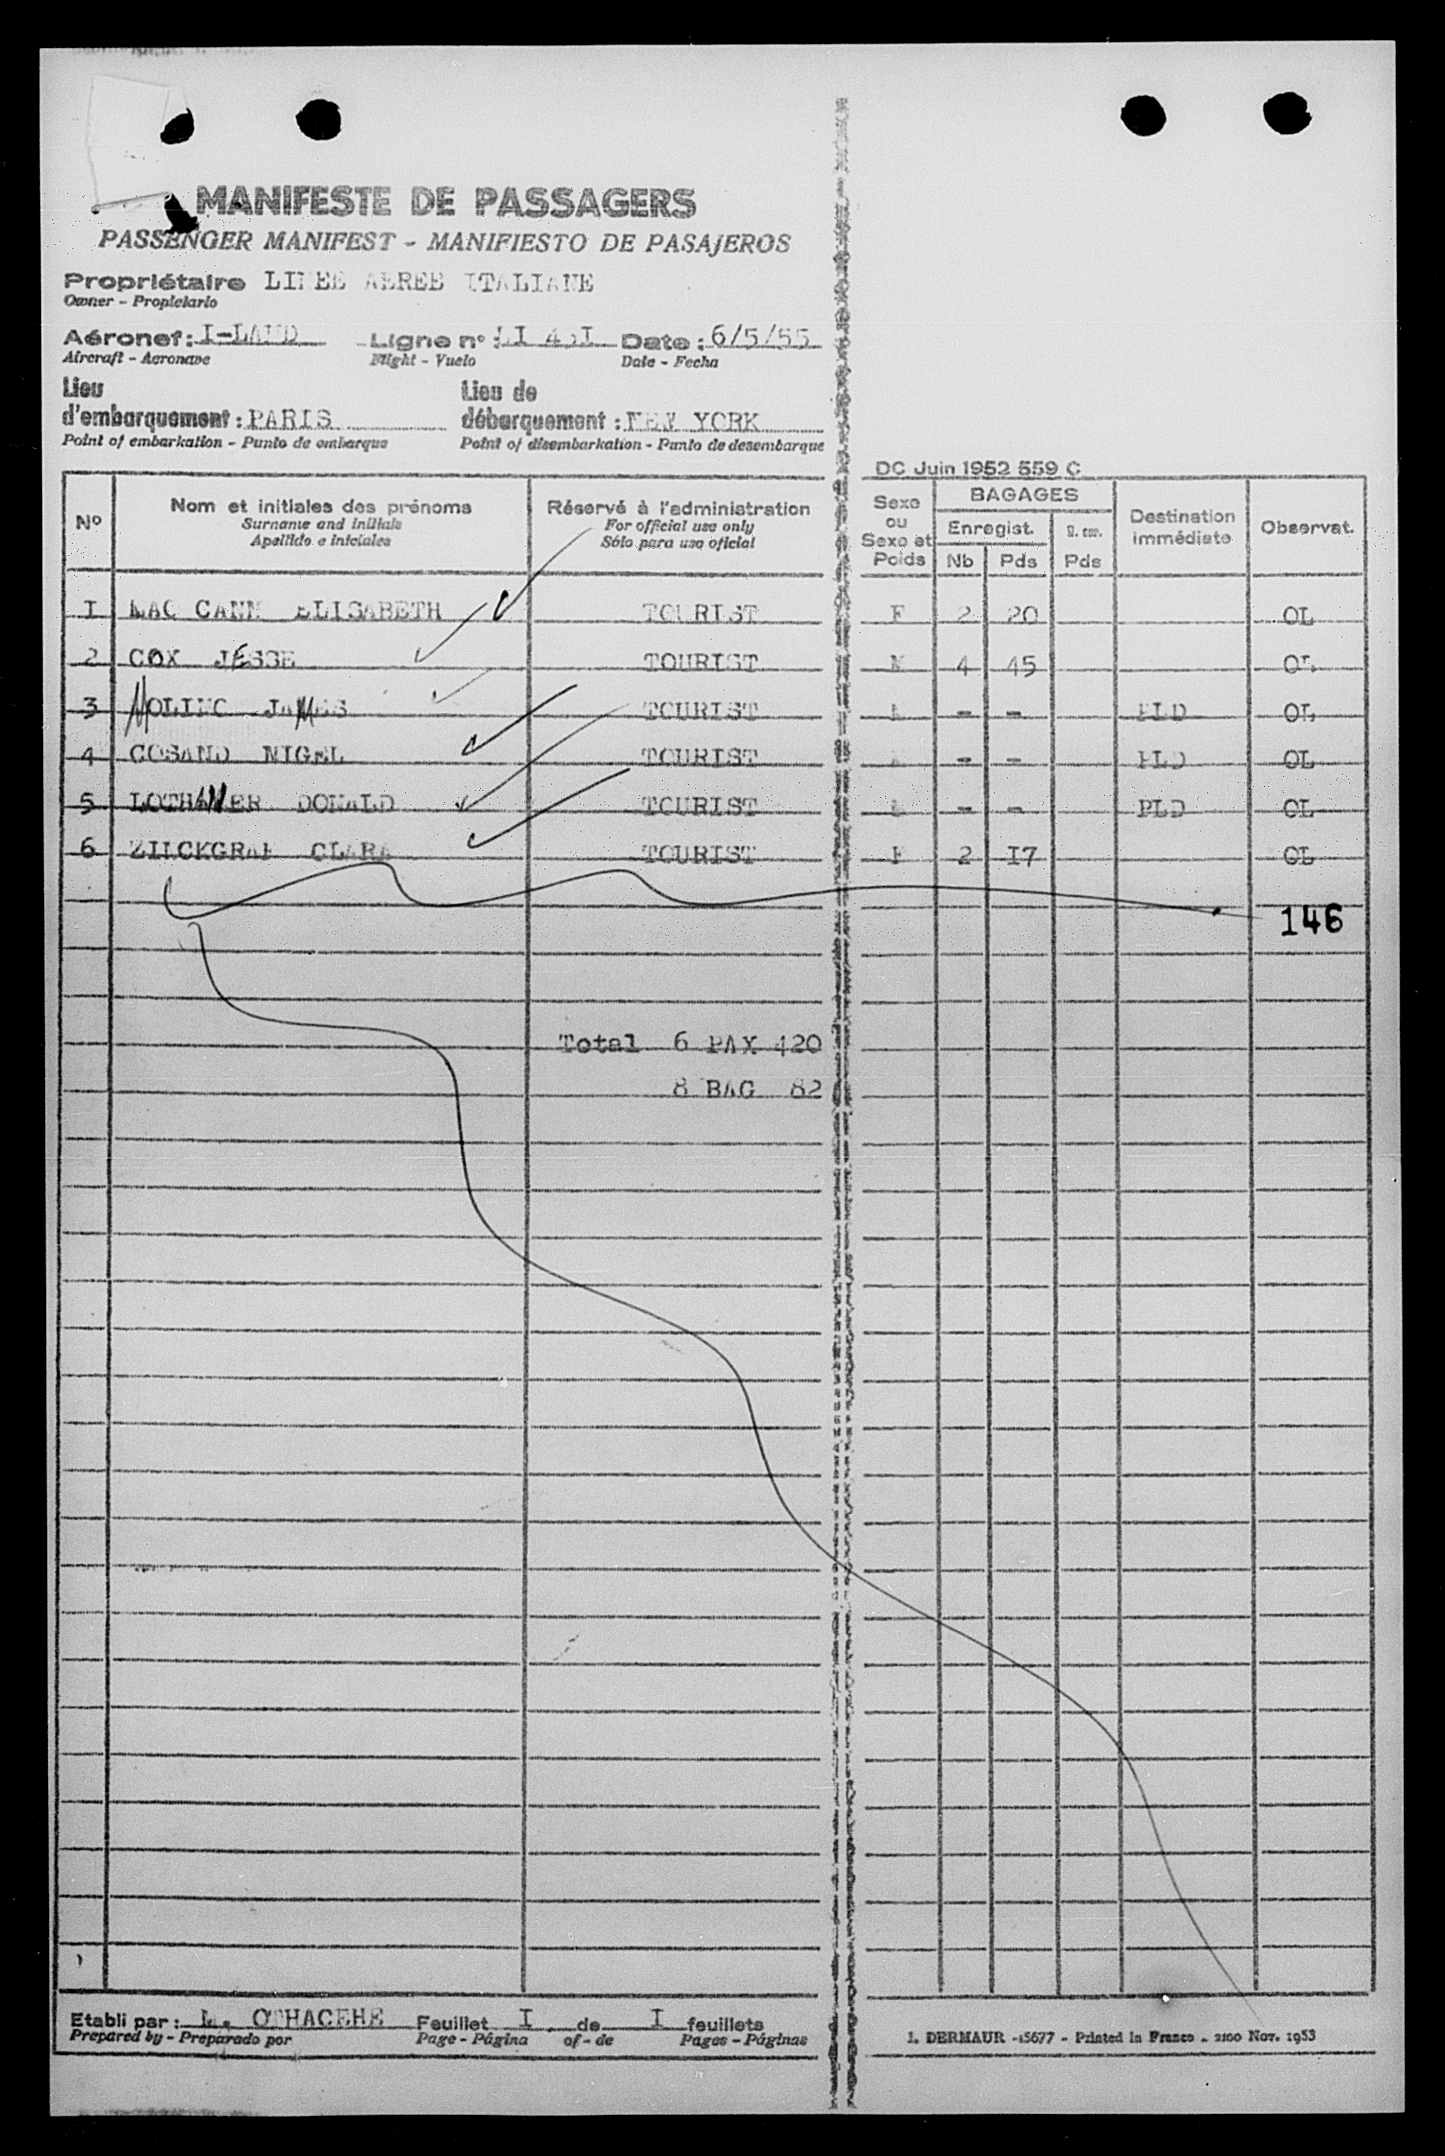 MANIFESTE DE PASSAGERS
PASSENGER MANIFEST - MANIFIESTO DE PASAJEROS
Propriétaire LINEE AEREE ITALIANE
Owner - Propietario
Aéronef: I-LAND Ligne n° : LI 451 Date : 6/5/55
Aircraft - Aeronave Flight - Vuelo Date - Fecha
Lieu d'embarquement : PARIS Lieu de débarquement : NEW YORK
Point of embarkation - Punto de embarque Point of disembarkation - Punto de desembarque
DC Juin 1952 559 C
N° Nom et initiales des prénoms Réservé à l'administration Sexe ou Sexe et Poids BAGAGES Destination immédiate Observat.
Surname and initials For official use only Enregist.
Apellido e iniciales Sólo para uso oficial Nb Pds Pds
I MAC CANN ELISABETH TOURIST F 2 20 OL
2 COX JESSE TOURIST M 4 45 OL
3 MOLINO JAMES TOURIST - - PLD OL
4 COSAND NIGEL TOURIST - - PLD OL
5 DONALD TOURIST - - PLD OL
6 CLARA TOURIST F 2 I7 OL
146
Total 6 PAX 420
8 BAG 82
Etabli par : L. OTHACEHE Feuillet I de I feuillets
Prepared by - Preparado por Page - Página of - de Pages - Páginas
J. DERMAUR -15677 - Printed in France - 2100 Nov. 1953